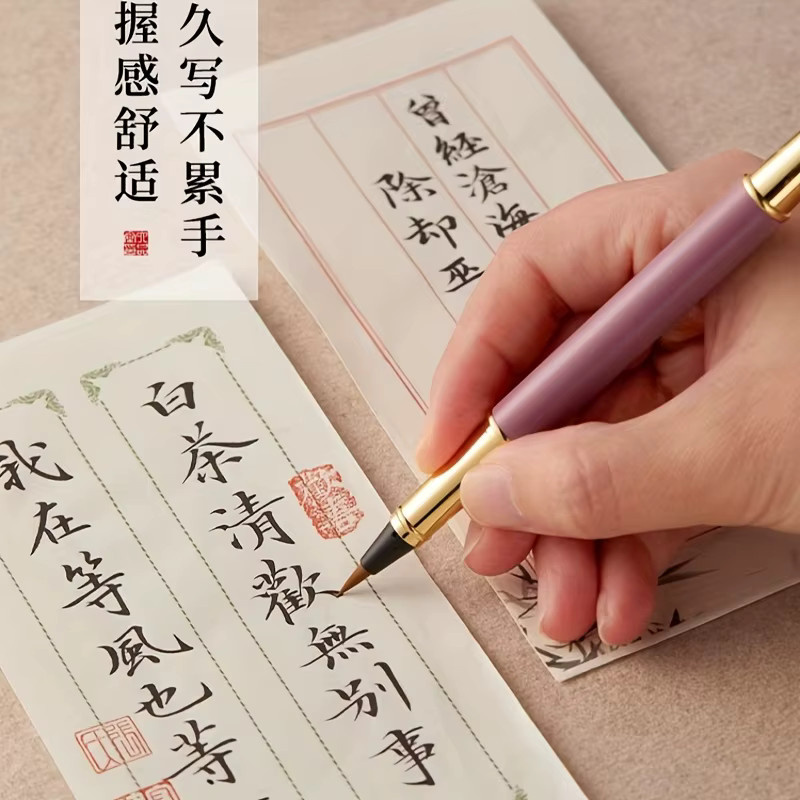 久写不累手
握感舒适
曾經滄海
除却巫
白茶清歡無別事
我在等風也等